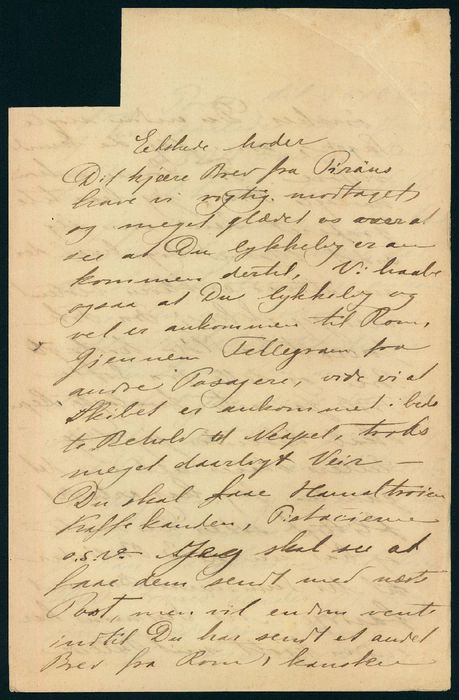 Elskede Moder
Dit kjære Brev fra Piräus
have vi rigtig modtaget
og meget glædet os over at
see at Du lykkelig er an
kommen dertil, Vi haabe
ogsaa at Du lykkelig og
vel er ankommen til Rom,
Gjennem Tellegram fra
andre Pasagere, vide vi at
Skibet er ankommet i beds
te Behold til Neapel, trods
meget daarligt Veir —
Du skal faae
Kaffekanden, Pistacierne
o.s.v. Jeg skal see at
faae dem sendt med næste
Post, men vil endnu vente
indtil Du har sendt et andet
Brev fra Rom, kanskee